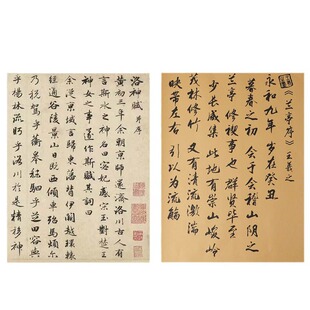 洛神賦 并序
黄初三年余朝京師還濟洛川古人有
言斯水之神名曰宓妃感宋玉對楚王
神女之事遂作斯賦其詞曰
余從京域言歸東藩背伊闕越轘轅
經通谷陵景山日既西傾車殆馬煩爾
乃税駕乎蘅皋秣駟乎芝田容與
乎楊林流眄乎洛川於是精移神
《兰亭序》王羲之
永和九年 岁在癸丑
暮春之初 会于会稽山阴之
兰亭 修禊事也 群贤毕至
少长咸集 此地有崇山峻岭
茂林修竹 又有清流激湍
映带左右 引以为流觞